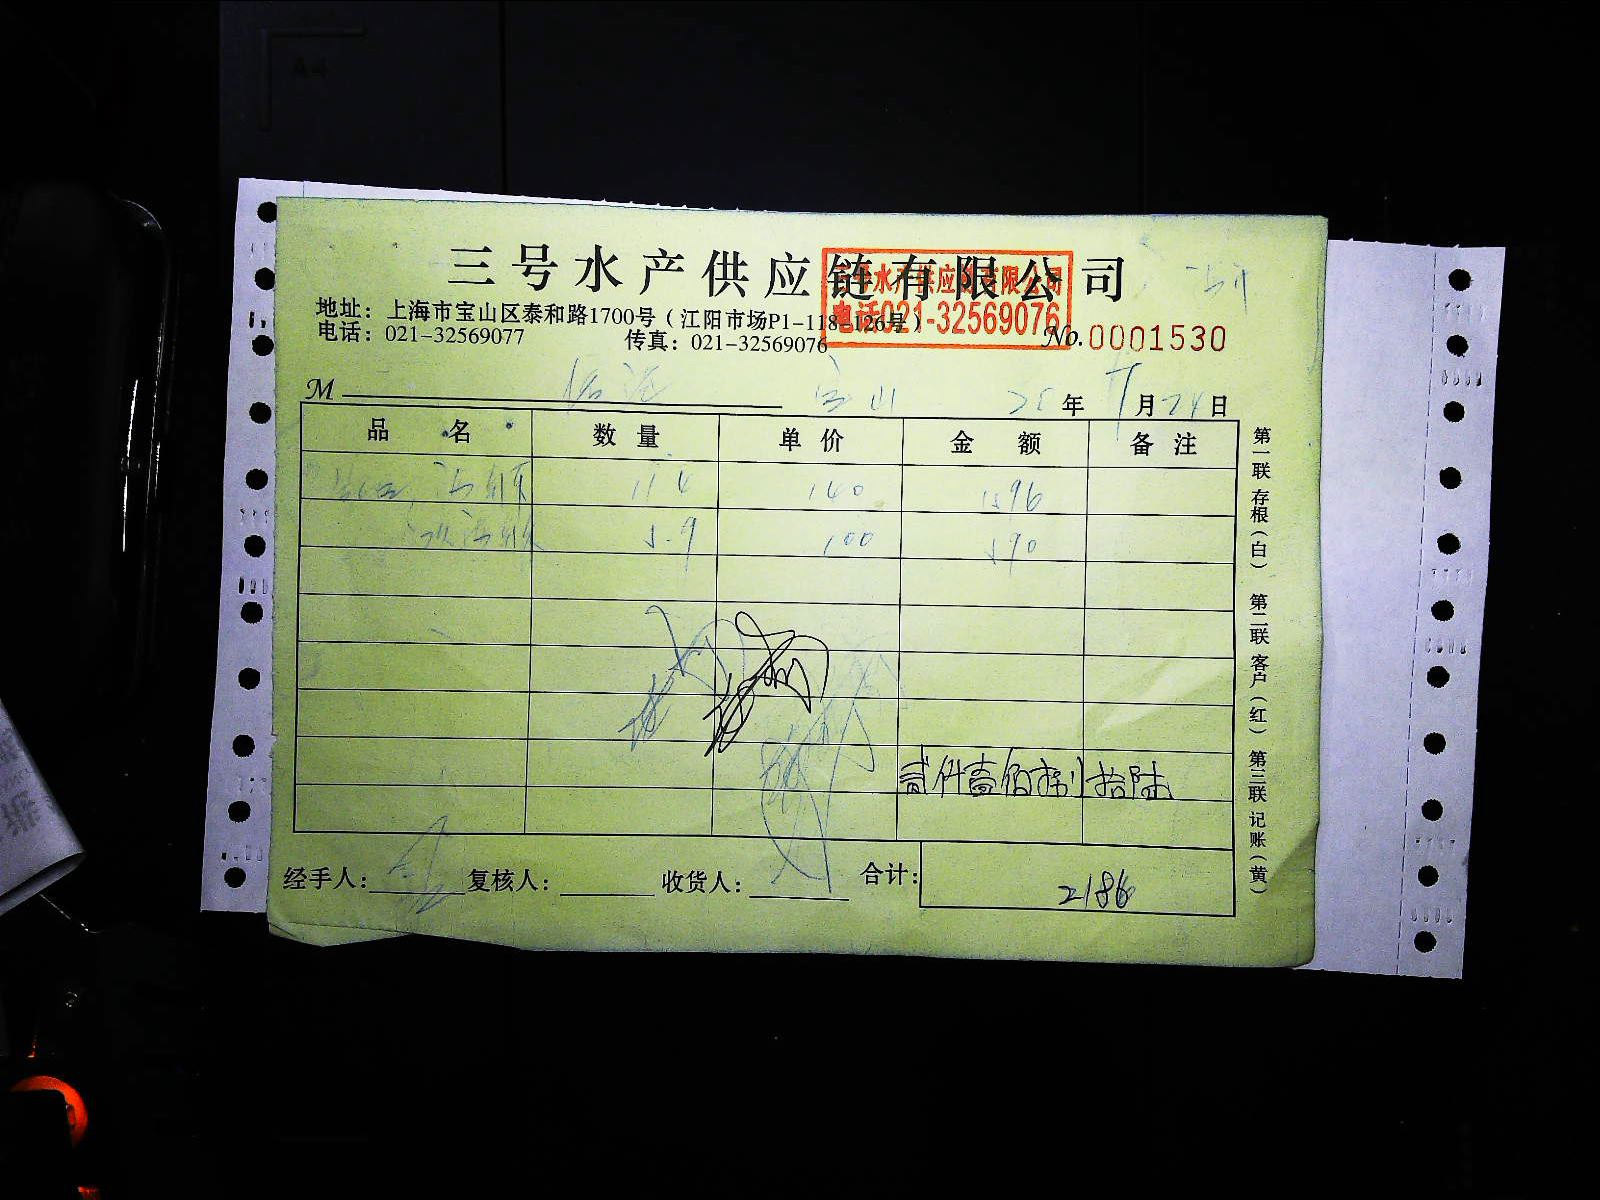 三号水产供应链有限公司
地址：上海市宝山区泰和路1700号（江阳市场P1-118-126号）
电话：021-32569077 传真：021-32569076
电话021-32569076
No.0001530
M 宝山 25年 月24日
品名 数量 单价 金额 备注
11.4 140 1596
5.9 100 590
贰仟壹佰捌拾陆
经手人： 复核人： 收货人： 合计： 2186
第一联 存根（白） 第二联 客户（红） 第三联 记账（黄）